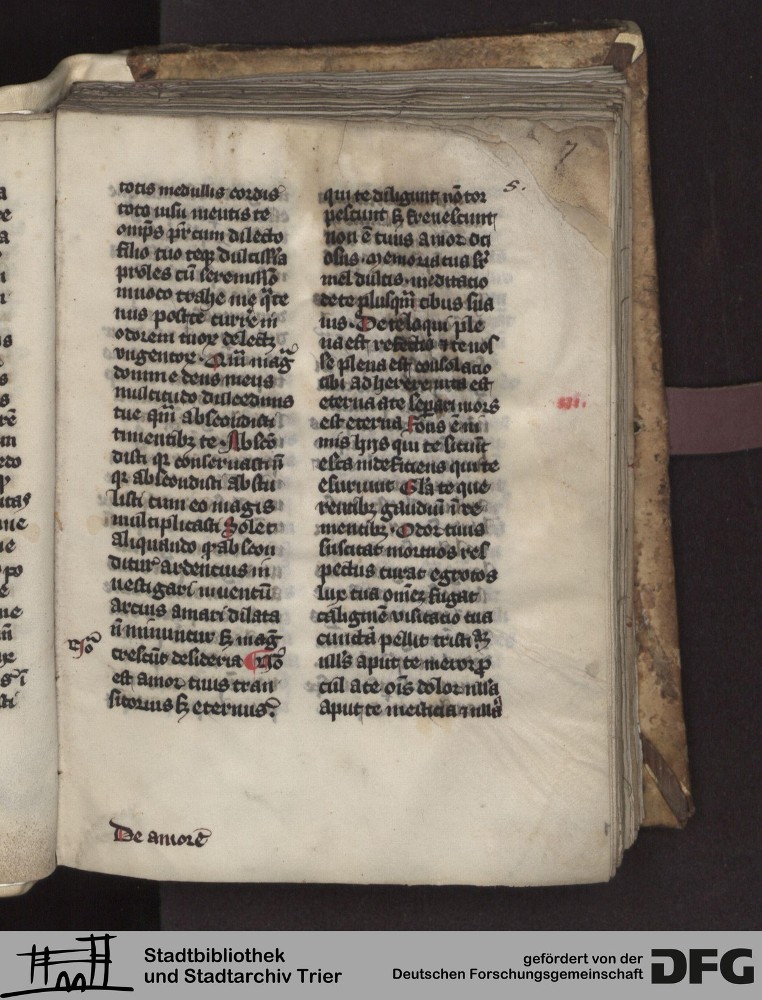 7
5.
totis medullis cordis
toto uisu mentis te
om̄ps pr̄ cum dilecto
filio tuo teqȝ dulcissīa
proles cū serenissō
inuoco trahe me
post te curr̄e in
odorem tuoꝝ delectꝫ
vngentoꝝ. Qm̄ mag̃
domine deus meus
multitudo dulcedinis
tue qm̄ abscondisti
timentibȝ te. Abscō
disti qꝛ conseruasti ñ
qꝛ abscondisti abstu
listi cum eo magis
multiplicasti Solet
aliquando qd̓ abscon
ditur ardentius in
uestigari inuentū
arcius amari dilata
ñ minuntur sꝫ mag̃
crescūt desideria Nō
est amor tuus tran
sitorius sꝫ eternus.
De amore
qui te diligunt nō tor
pescunt sꝫ feruescunt
non ē tuus amor oci
osus. memoria tua sr̄
mel dulcis. meditatio
de te plusqm̄ cibus sua
uis. De te loqui ple
na est refectio te nos
se plena est consolacio
tibi adherere uita est
eterna a te sepāri mors
est eterna. Fons ē ni
mis hijs qui te sitiūt
esca indeficiens qui te
esuriunt Gl̄a te que
rentibȝ gaudiū ī ue
nientibȝ. Odor tuus
suscitat mortuos res
pectus curat egrotos
lux tua om̄eꝫ fugat
caliginē visitatio tua
cunctā pellit tristiaꝫ
ull̄s aput te meror
a te oīs dolor nlla
aput te mesticia
iii.
Stadtbibliothek
und Stadtarchiv Trier
gefördert von der
Deutschen Forschungsgemeinschaft
DFG